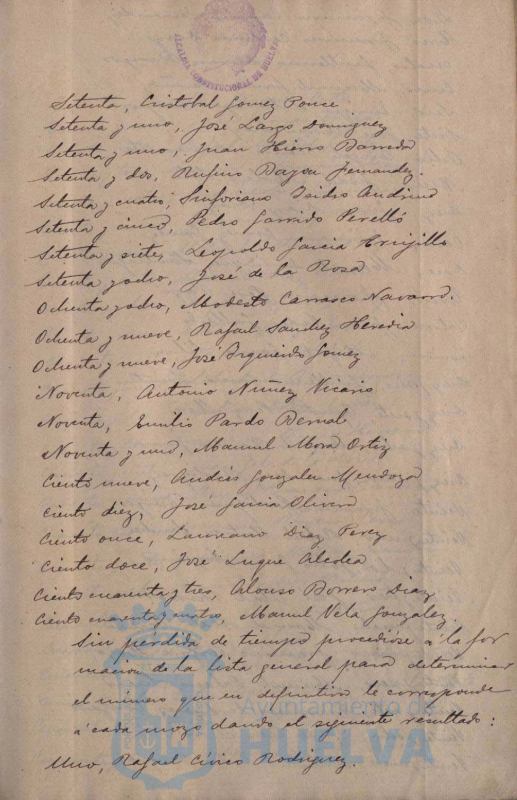 ALCALDIA CONSTITUCIONAL DE HUELVA
Setenta, Cristobal Gomez Ponce
Setenta y uno, José Largo Dominguez
Setenta y uno, Juan Hierro Barreda
Setenta y dos, Rufino Bayou Fernandez.
Setenta y cuatro, Sinforiano Isidro Andrino
Setenta y cinco, Pedro Garrido Perelló
Setenta y siete, Leopoldo Garcia Trujillo
Setenta y ocho, José de la Rosa
Ochenta y ocho, Modesto Carrasco Navarro.
Ochenta y nueve, Rafael Sanchez Heredia
Ochenta y nueve, José Izquierdo Gomez
Noventa, Antonio Nuñez Vicario
Noventa, Emilio Pardo Bernal
Noventa y uno, Manuel Mora Ortiz
Ciento nueve, Andrés Gonzalez Mendoza
Ciento diez, José Garcia Olivera
Ciento once, Laureano Diaz Perez
Ciento doce, José Luque Alcolea
Ciento cuarenta y tres, Alonso Borrero Diaz
Ciento cuarenta y cuatro, Manuel Vela Gonzalez
Sin perdida de tiempo procedióse á la for
macion de la lista general para determinar
el número que en definitiva le corresponde
á cada mozo dando el siguiente resultado:
Uno, Rafael Cívico Rodriguez.
Ayuntamiento de
HUELVA